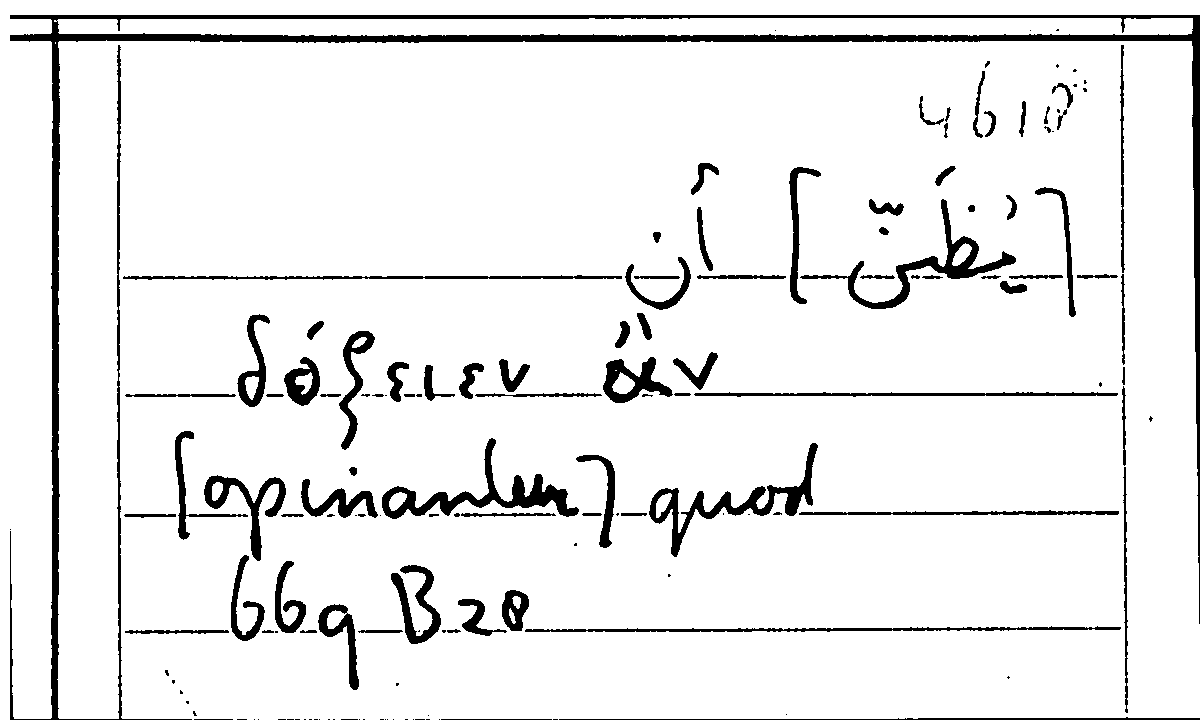 4618
[يُظَنّ] أن
δόξειεν ἄν
[opinantur] quod
669 B28